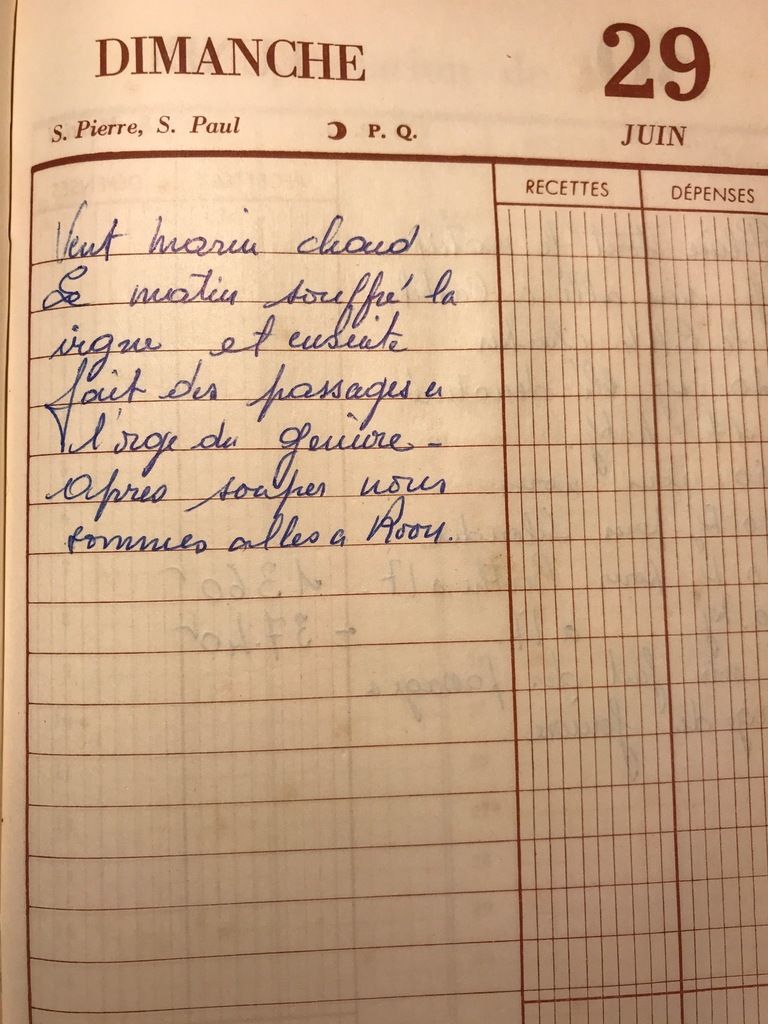 DIMANCHE 29
S. Pierre, S. Paul P. Q. JUIN
RECETTES DÉPENSES
Vent marin chaud
Le matin souffré la
vigne et ensuite
fait des passages a
l'orge du
Apres souper nous
sommes alles a